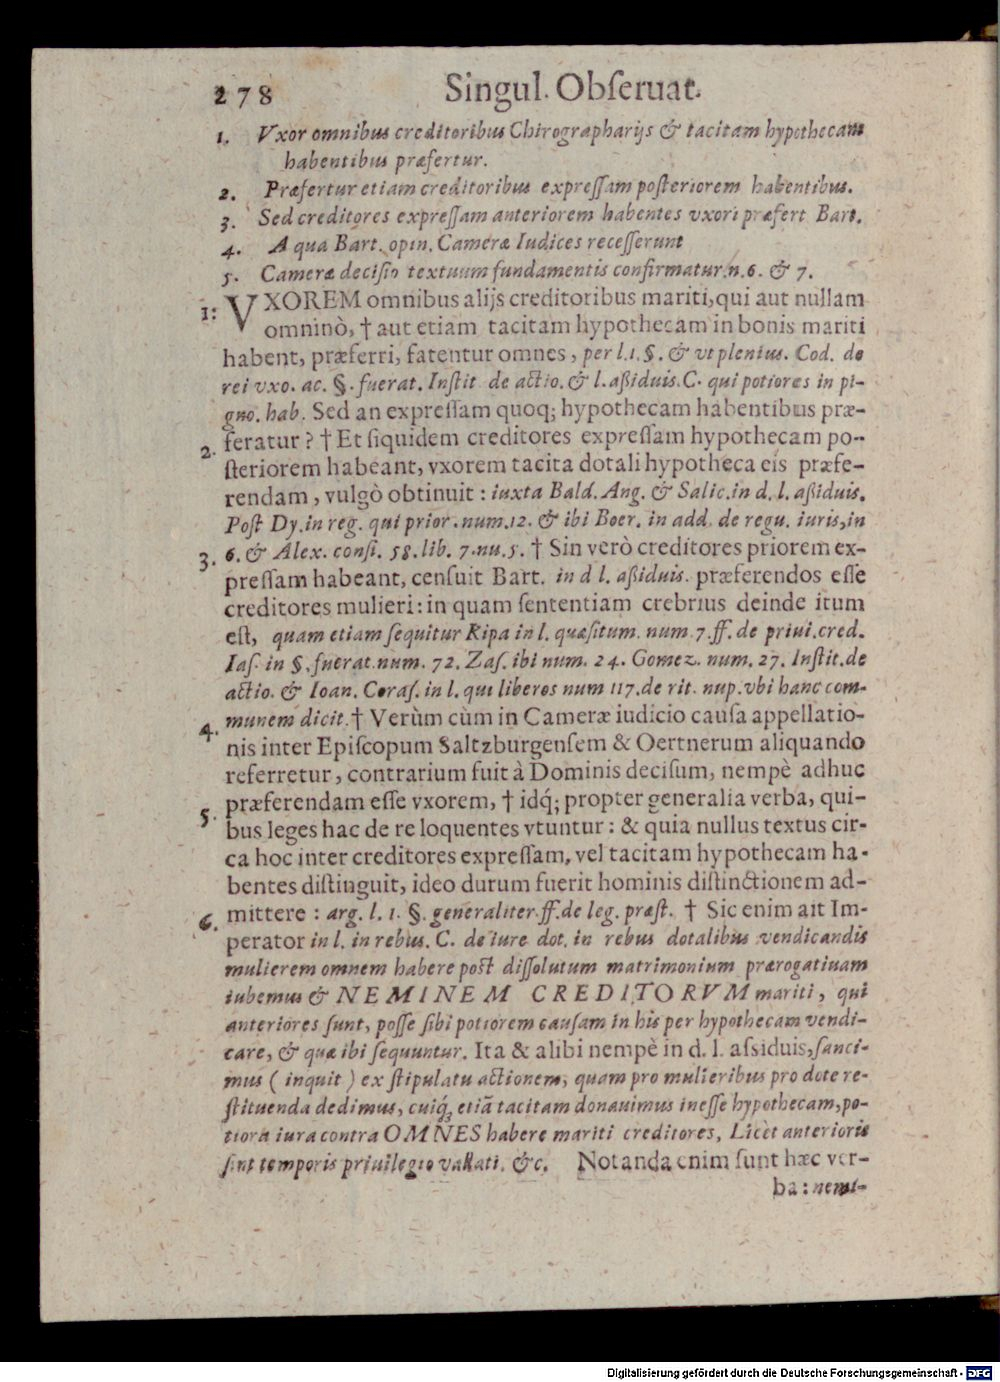 278 Singul. Obſeruat.
1. Vxor omnibus creditoribus Chirographarijs & tacitam hypothecam
habentibus præfertur.
2. Præfertur etiam creditoribus expreſſam poſteriorem habentibus.
3. Sed creditores expreſſam anteriorem habentes vxori præfert Bart.
4. A qua Bart. opin. Cameræ Iudices receſſerunt
5. Cameræ deciſio textuum fundamentis confirmatur.n.6. & 7.
1: VXOREM omnibus alijs creditoribus mariti,qui aut nullam
omninò, † aut etiam tacitam hypothecam in bonis mariti
habent, præferri, fatentur omnes, per l.1. §. & vt plenius. Cod. de
rei vxo. ac. §. fuerat. Inſtit de actio. & l. aßiduis.C. qui potiores in pi-
gno. hab. Sed an expreſſam quoq; hypothecam habentibus præ-
2. feratur ? † Et ſiquidem creditores expreſſam hypothecam po-
ſteriorem habeant, vxorem tacita dotali hypotheca eis præfe-
rendam, vulgò obtinuit : iuxta Bald. Ang. & Salic. in d. l. aßiduis.
Poſt Dy. in reg. qui prior. num.12. & ibi Boer. in add. de regu. iuris,in
3. 6. & Alex. conſi. 58. lib. 7. nu. 5. † Sin verò creditores priorem ex-
preſſam habeant, cenſuit Bart. in d l. aßiduis. præferendos eſſe
creditores mulieri: in quam ſententiam crebrius deinde itum
eſt, quam etiam ſequitur Ripa in l. quæſitum. num. 7. ff. de priui.cred.
Iaſ. in §. fuerat. num. 72. Zaſ. ibi num. 24. Gomez. num. 27. Inſtit. de
actio. & Ioan. Coraſ. in l. qui liberos num 117.de rit. nup. vbi hanc com-
4. munem dicit. † Verùm cùm in Cameræ iudicio cauſa appellatio-
nis inter Epiſcopum Saltzburgenſem & Oertnerum aliquando
referretur, contrarium fuit à Dominis deciſum, nempè adhuc
5. præferendam eſſe vxorem, † idq́; propter generalia verba, qui-
bus leges hac de re loquentes vtuntur: & quia nullus textus cir-
ca hoc inter creditores expreſſam, vel tacitam hypothecam ha-
bentes diſtinguit, ideo durum fuerit hominis diſtinctionem ad-
6. mittere : arg. l. 1. §. generaliter. ff. de leg. præſt. † Sic enim ait Im-
perator in l. in rebus. C. de iure dot. in rebus dotalibus vendicandis
mulierem omnem habere post diſſolutum matrimonium prærogatiuam
iubemus & NEMINEM CREDITORVM mariti, qui
anteriores ſunt, poſſe ſibi potiorem cauſam in his per hypothecam vendi-
care, & quæ ibi ſequuntur. Ita & alibi nempè in d. l. aſsiduis,ſanci-
mus ( inquit ) ex ſtipulatu actionem, quam pro mulieribus pro dote re-
ſtituenda dedimus, cuiq́; etiã tacitam donauimus ineſſe hypothecam,po-
tiora iura contra OMNES habere mariti creditores, Licèt anterioris
ſint temporis priuilegio vallati. &c. Notanda enim ſunt hæc ver-
ba: nemi-
Digitalisierung gefördert durch die Deutsche Forschungsgemeinschaft - DFG